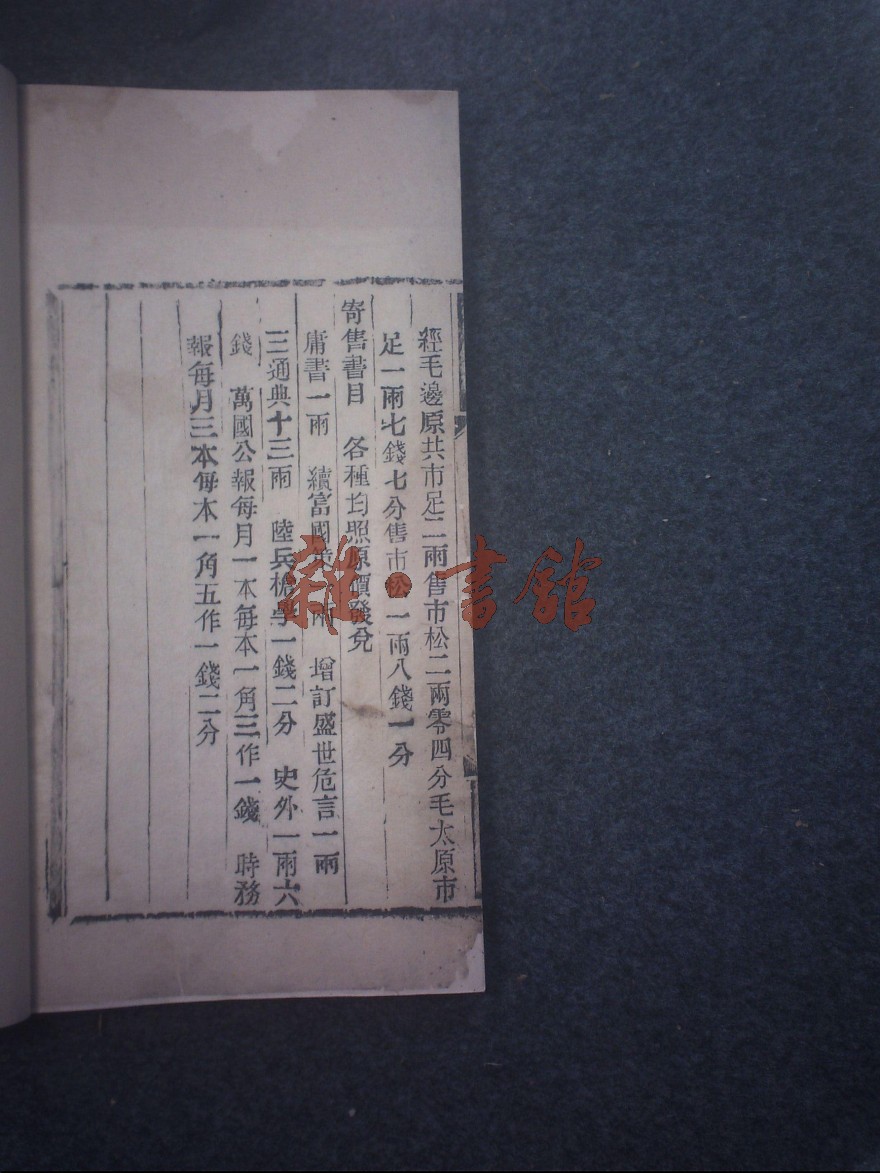 經毛邊原共市足二兩售市松二兩零四分毛太原市
足一兩七錢七分售市松一兩八錢一分
寄售書目　各種均照原價發兌
庸書一兩　續富國　兩　增訂盛世危言一兩
三通典十三兩　陸兵槍學一錢二分　史外一兩六
錢　萬國公報每月一本每本一角三作一錢　時務
報每月三本每本一角五作一錢二分
雜·書館